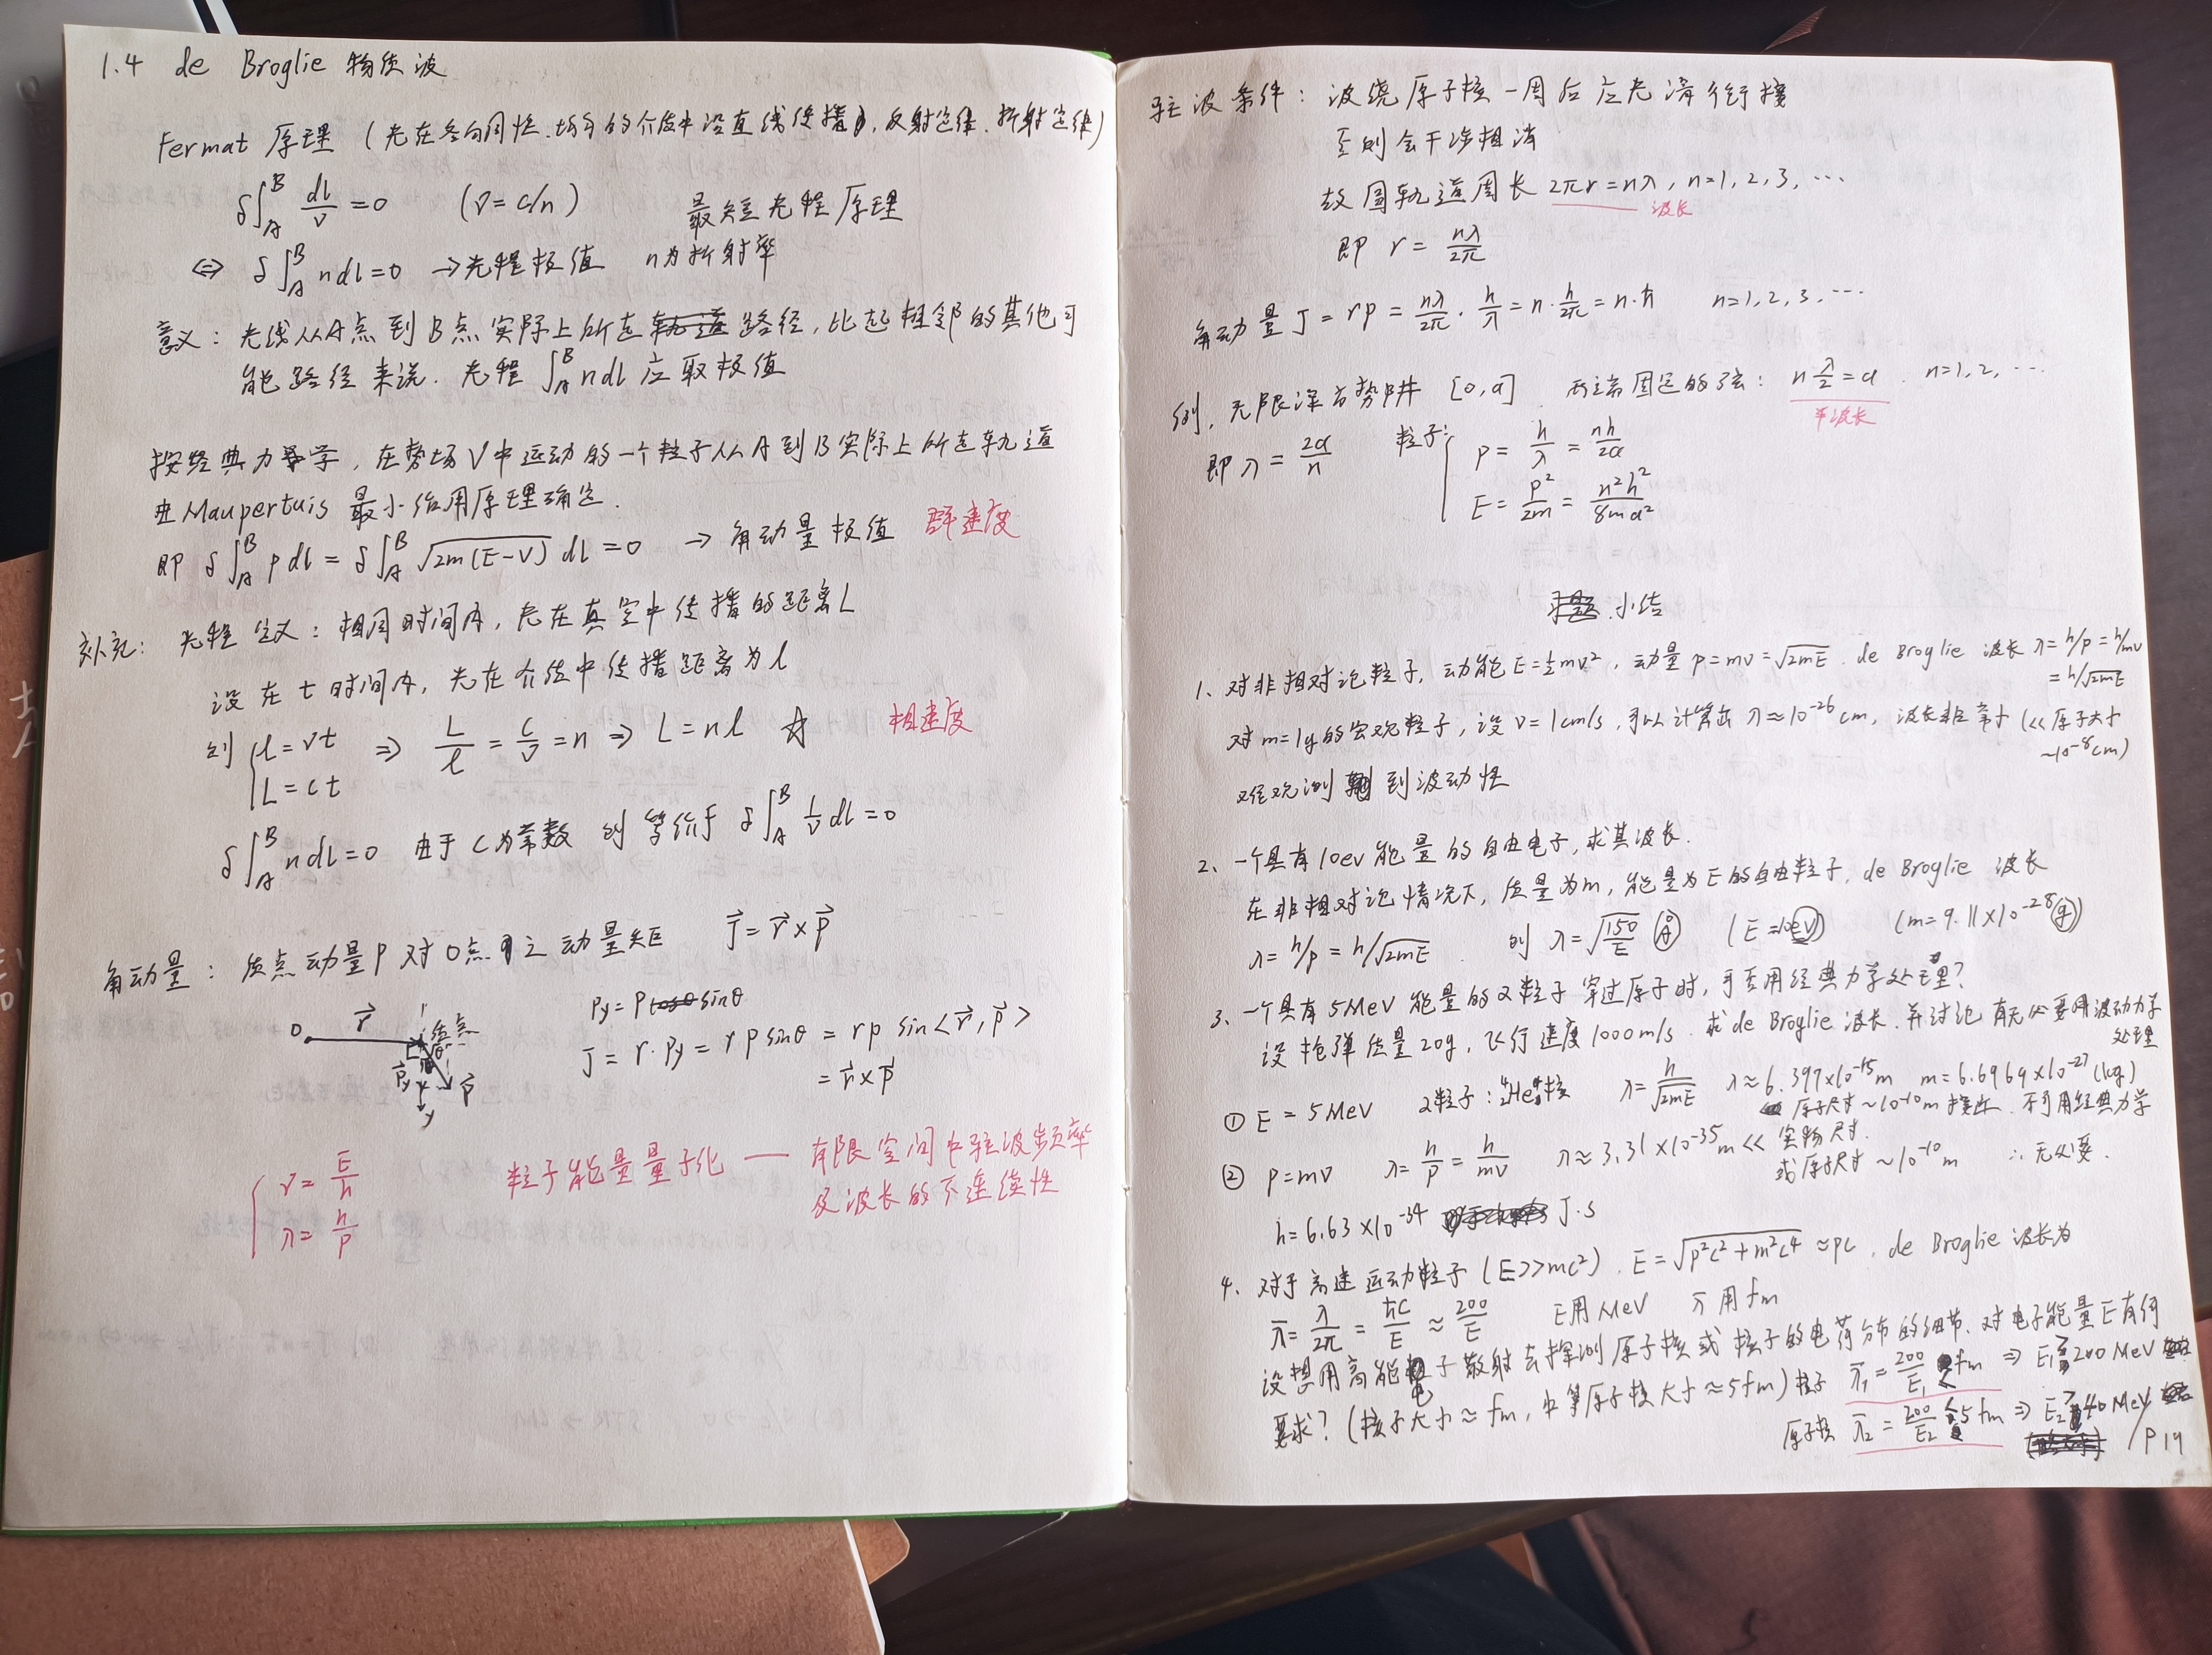 1.4 de Broglie 物质波
Fermat 原理 (光在各向同性、均匀的介质中沿直线传播, 反射定律、折射定律)
δ∫_A^B dl/v = 0 (v = c/n) 最短光程原理
⇔ δ∫_A^B n dl = 0 → 光程极值 n为折射率
意义: 光线从A点到B点实际上所走路径, 比起相邻的其他可
能路径来说, 光程 ∫_A^B n dl 应取极值
按经典力学, 在势场V中运动的一个粒子从A到B实际上所走轨道
由Maupertuis 最小作用原理确定.
即 δ∫_A^B p dl = δ∫_A^B √(2m(E-V)) dl = 0 → 角动量极值 群速度
补充: 光程定义: 相同时间内, 光在真空中传播的距离L
设在t时间内, 光在介质中传播距离为l
则 { l = vt ⇒ L/l = c/v = n ⇒ L = nl ☆ 相速度
L = ct
δ∫_A^B n dl = 0 由于C为常数 则等价于 δ∫_A^B 1/v dl = 0
角动量: 质点动量P对O点之动量矩 J⃗ = r⃗ × p⃗
Py = P sinθ
O r⃗ 质点 θ P⃗y P⃗ y
J = r·Py = r p sinθ = r p sin<r⃗, p⃗>
= r⃗ × p⃗
{ ν = E/h
λ = h/p
粒子能量量子化 — 有限空间中驻波频率
及波长的不连续性
驻波条件: 波绕原子核一周后应光滑衔接
否则会干涉相消
故圆轨道周长 2πr = nλ, n=1, 2, 3, ⋯
波长
即 r = nλ/2π
角动量 J = rp = nλ/2π · h/λ = n · h/2π = n·ħ n=1, 2, 3, ⋯
例, 无限深方势阱 [0, a] 两端固定的弦: n λ/2 = a, n=1, 2, ⋯
半波长
即 λ = 2a/n 粒子: { p = h/λ = nh/2a
E = p²/2m = n²h²/8ma²
小结
1、对非相对论粒子, 动能 E=½mv², 动量 p=mv=√(2mE). de Broglie 波长 λ = h/p = h/mv
= h/√(2mE)
对m=1g的宏观粒子, 设 v = 1cm/s, 可以计算出 λ≈10⁻²⁶cm, 波长非常小 (<<原子大小
~10⁻⁸cm)
难观测到波动性
2、一个具有10ev能量的自由电子, 求其波长.
在非相对论情况下, 质量为m, 能量为E的自由粒子, de Broglie 波长
λ = h/p = h/√(2mE) 则 λ = √(150/E) Å (E = 10eV) (m = 9.11×10⁻²⁸g)
3、一个具有5MeV能量的α粒子穿过原子时, 可否用经典力学处理?
设枪弹质量20g, 飞行速度1000m/s. 求de Broglie 波长. 并讨论有无必要用波动力学
处理
① E = 5MeV α粒子: ⁴₂He核 λ = h/√(2mE) λ≈6.397×10⁻¹⁵m m=6.6969×10⁻²⁷(kg)
原子尺寸~10⁻¹⁰m 接近. 不可用经典力学
② p=mv λ = h/p = h/mv λ≈3.31×10⁻³⁵m << 实物尺寸.
或原子尺寸~10⁻¹⁰m ∴ 无必要.
h = 6.63×10⁻³⁴ J·s
4、对于高速运动粒子 (E>>mc²), E = √(p²c²+m²c⁴) ≈ pc, de Broglie 波长为
ƛ = λ/2π = ħc/E ≈ 200/E E用MeV ƛ用fm
设想用高能电子散射去探测原子核或核子的电荷分布的细节, 对电子能量E有何
要求? (核子大小≈fm, 中等原子核大小≈5fm) 核子 ƛ₁ = 200/E₁ < fm ⇒ E₁ > 200 MeV
原子核 ƛ₂ = 200/E₂ < 5fm ⇒ E₂ > 40 MeV
/P19